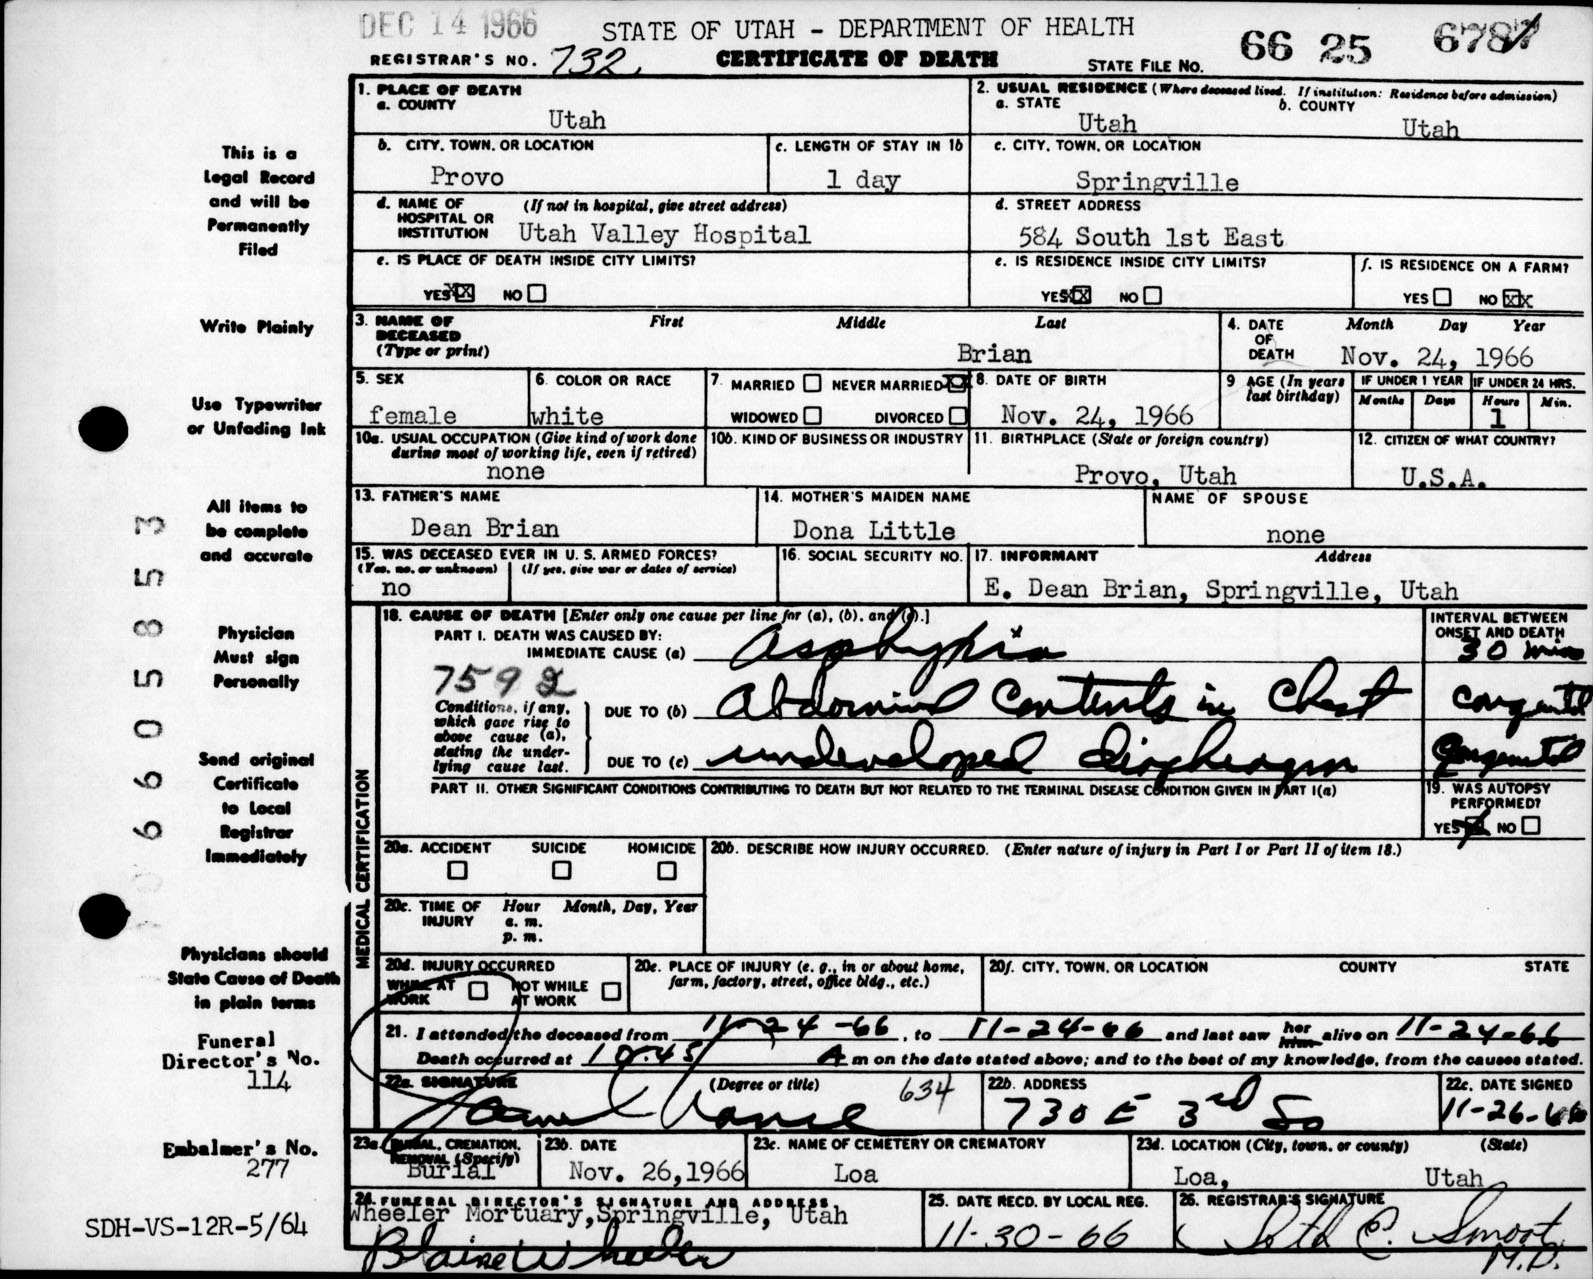 DEC 14 1966
STATE OF UTAH - DEPARTMENT OF HEALTH
66 25 6787
REGISTRAR'S NO. 732
CERTIFICATE OF DEATH
STATE FILE NO.
1. PLACE OF DEATH
a. COUNTY
Utah
2. USUAL RESIDENCE (Where deceased lived. If institution: Residence before admission)
a. STATE
Utah
b. COUNTY
Utah
b. CITY, TOWN, OR LOCATION
Provo
c. LENGTH OF STAY IN 1b
1 day
c. CITY, TOWN, OR LOCATION
Springville
d. NAME OF HOSPITAL OR INSTITUTION
(If not in hospital, give street address)
Utah Valley Hospital
d. STREET ADDRESS
584 South 1st East
e. IS PLACE OF DEATH INSIDE CITY LIMITS?
YES XX NO
e. IS RESIDENCE INSIDE CITY LIMITS?
YES XX NO
f. IS RESIDENCE ON A FARM?
YES NO XX
3. NAME OF DECEASED
(Type or print)
First Middle Last
Brian
4. DATE OF DEATH
Month Day Year
Nov. 24, 1966
5. SEX
female
6. COLOR OR RACE
white
7. MARRIED NEVER MARRIED X
WIDOWED DIVORCED
8. DATE OF BIRTH
Nov. 24, 1966
9 AGE (In years last birthday)
IF UNDER 1 YEAR
Months Days
IF UNDER 24 HRS.
Hours Min.
1
10a. USUAL OCCUPATION (Give kind of work done during most of working life, even if retired)
none
10b. KIND OF BUSINESS OR INDUSTRY
11. BIRTHPLACE (State or foreign country)
Provo, Utah
12. CITIZEN OF WHAT COUNTRY?
U.S.A.
13. FATHER'S NAME
Dean Brian
14. MOTHER'S MAIDEN NAME
Dona Little
NAME OF SPOUSE
none
15. WAS DECEASED EVER IN U. S. ARMED FORCES?
(Yes, no, or unknown) (If yes, give war or dates of service)
no
16. SOCIAL SECURITY NO.
17. INFORMANT Address
E. Dean Brian, Springville, Utah
MEDICAL CERTIFICATION
18. CAUSE OF DEATH [Enter only one cause per line for (a), (b), and (c).]
INTERVAL BETWEEN ONSET AND DEATH
PART I. DEATH WAS CAUSED BY:
IMMEDIATE CAUSE (a) Asphyxia
30 min
7592
Conditions, if any, which gave rise to above cause (a), stating the underlying cause last.
DUE TO (b) Abdominal Contents in Chest
congenital
DUE TO (c) undeveloped diaphragm
Congenital
PART II. OTHER SIGNIFICANT CONDITIONS CONTRIBUTING TO DEATH BUT NOT RELATED TO THE TERMINAL DISEASE CONDITION GIVEN IN PART I(a)
19. WAS AUTOPSY PERFORMED?
YES NO
20a. ACCIDENT SUICIDE HOMICIDE
20b. DESCRIBE HOW INJURY OCCURRED. (Enter nature of injury in Part I or Part II of item 18.)
20c. TIME OF INJURY
Hour Month, Day, Year
a. m.
p. m.
20d. INJURY OCCURRED
WHILE AT WORK NOT WHILE AT WORK
20e. PLACE OF INJURY (e. g., in or about home, farm, factory, street, office bldg., etc.)
20f. CITY, TOWN, OR LOCATION COUNTY STATE
21. I attended the deceased from 11-24-66, to 11-24-66 and last saw her him alive on 11-24-66
Death occurred at 10:45 A m on the date stated above; and to the best of my knowledge, from the causes stated.
22a. SIGNATURE (Degree or title)
634
22b. ADDRESS
730 E 3rd So
22c. DATE SIGNED
11-26-66
23a. BURIAL, CREMATION, REMOVAL (Specify)
Burial
23b. DATE
Nov. 26,1966
23c. NAME OF CEMETERY OR CREMATORY
Loa
23d. LOCATION (City, town, or county) (State)
Loa, Utah
24. FUNERAL DIRECTOR'S SIGNATURE AND ADDRESS
Wheeler Mortuary,Springville, Utah
Blaine Wheeler
25. DATE RECD. BY LOCAL REG.
11-30-66
26. REGISTRAR'S SIGNATURE
Seth E. Smoot
M.D.
This is a
Legal Record
and will be
Permanently
Filed
Write Plainly
Use Typewriter
or Unfading Ink
All items to
be complete
and accurate
Physician
Must sign
Personally
Send original
Certificate
to Local
Registrar
Immediately
Physicians should
State Cause of Death
in plain terms
Funeral
Director's No.
114
Embalmer's No.
277
SDH-VS-12R-5/64
6605853